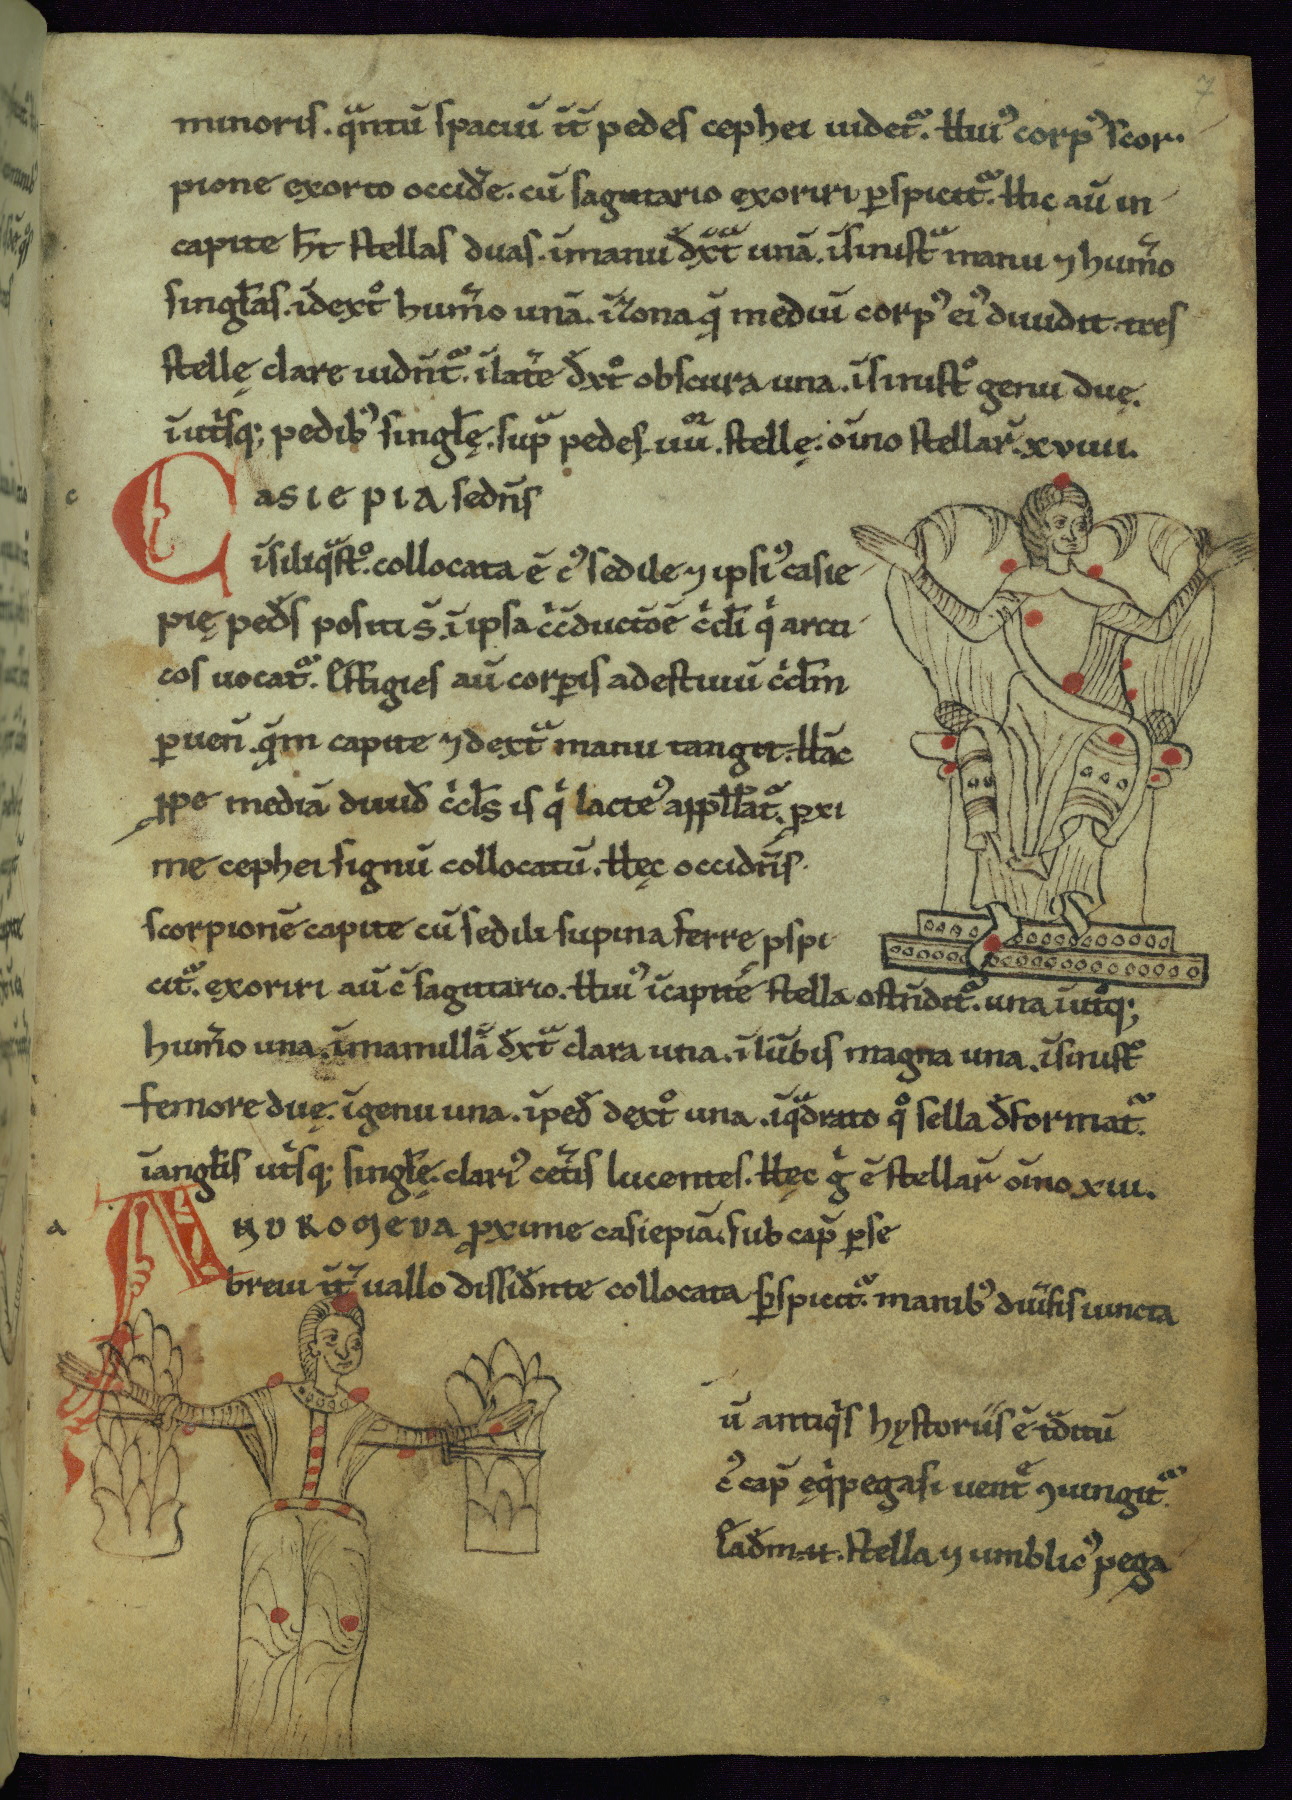 7
minoris. qͣntū spaciū īt̄ pedes cephei uidet᷑. Hui᾿ corp᾿ scor-
pione exorto occid̄e. cū sagittario exoriri ꝑspicit᷑. Hic aū in
capite h̄t stellas duas. īmanu d̄xt̄ͣ unā. īsinist̄ͣ manu ⁊ hum̄o
singl̄as. īdext̊ hum̄o unā. īzona q̄ mediū corp᾿ ei᾿ diuidit tres
stellę clare uidn̄t᷑. īlat̄e d̄xt̊ obscura una. īsinist̊ genu duę.
īut᷑sq; pedib᾿ singl̄ę. sup̄ pedes iiii᷑. stellę. oīno stellaꝝ xviiii.
c
CASIEPIA sedn̄s
īsiliqͣst̊. collocata ē c᾿ sedile ⁊ ipsi᾿ casie
pię ped̄s positi s̄ īipsa c̊c̄ductōe c̊cl̄i qⁱ arcti
cos uocat᷑. Effigies aū corꝑis ad estiuū c̊cl̄m
ꝑuen̄. q̄m capite ⁊ dext̄ͣ manu tangit. Hāc
ꝓpe mediā diuid̄ c̊cl̄s is qⁱ lacte᾿ appll̄at᷑. ꝓxi
me cephei signū collocatū. Hęc occidn̄s
scorpionē capite cū sedili supina ferre ꝑspi
cit᷑. exoriri aū c̄ sagittario. Hui᾿ īcapite stella ostn̄dit᷑. una īut̊q;
hum̄o una. īmamillā d̄xt̄ͣ clara una. īlūbis magna una. īsinist̊
femore duę. īgenu una. īped̄ dext̊ una. īqͣdrato q̊ sella d̄format᷑.
īangl̄is ut᷑sq; singl̄ę. clari᾿ cet̄is lucentes. Hęc gⁱ ē stellaꝝ oīno xiii.
a
ANDROMEDA ꝓxime casiepiā. sub cap̄ ꝑse
breui īt̄uallo dissid̄nte collocata ꝑspicit᷑. manib᾿ diūsis iuncta
ū antiqⁱs hystoriis ē tͣditū
c᾿ cap̄ ęqⁱpegasi uent̄ ꝯiungit᷑.
Ead̄m.n̄. stella ⁊ umblic᾿ pega